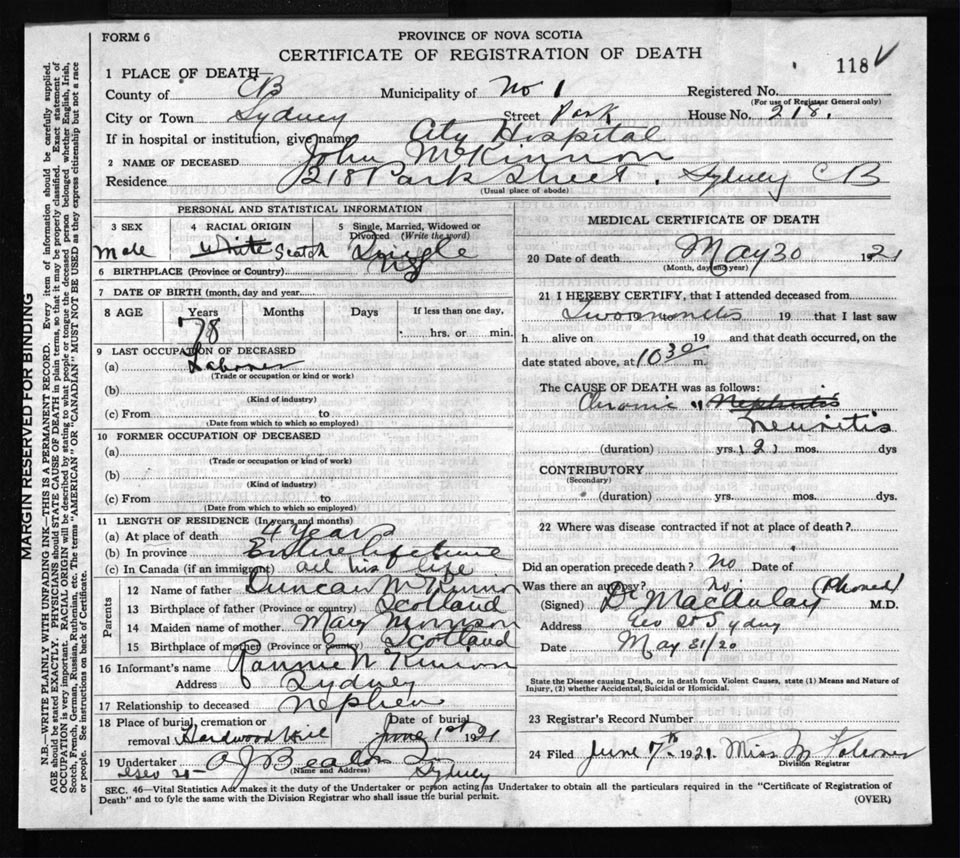 FORM 6
PROVINCE OF NOVA SCOTIA
CERTIFICATE OF REGISTRATION OF DEATH
118
1 PLACE OF DEATH—
County of CB Municipality of No 1 Registered No.
(For use of Registrar General only)
City or Town Sydney Street Park House No. 218.
If in hospital or institution, give name City Hospital
2 NAME OF DECEASED John McKinnon
Residence 218 Park Street. Sydney CB
(Usual place of abode)
PERSONAL AND STATISTICAL INFORMATION
3 SEX 4 RACIAL ORIGIN 5 Single, Married, Widowed or Divorced (Write the word)
Male White Scotch Single
6 BIRTHPLACE (Province or Country) NS
7 DATE OF BIRTH (month, day and year)
8 AGE Years Months Days If less than one day,
78 hrs. or min.
9 LAST OCCUPATION OF DECEASED
(a) Laborer
(Trade or occupation or kind or work)
(b)
(Kind of industry)
(c) From to
(Date from which to which so employed)
10 FORMER OCCUPATION OF DECEASED
(a)
(Trade or occupation or kind of work)
(b)
(Kind of industry)
(c) From to
(Date from which to which so employed)
11 LENGTH OF RESIDENCE (In years and months)
(a) At place of death 4 Years
(b) In province Entire lifetime
(c) In Canada (if an immigrant) all his life
Parents
12 Name of father Duncan McKinnon
13 Birthplace of father (Province or Country) Scotland
14 Maiden name of mother Mary Morrison
15 Birthplace of mother (Province or Country) Scotland
16 Informant's name Rannie McKinnon
Address Sydney
17 Relationship to deceased Nephew
18 Place of burial, cremation or removal Hardwood Hill Date of burial June 1st 1921
19 Undertaker A J Beaton Sydney
(Name and Address)
MEDICAL CERTIFICATE OF DEATH
20 Date of death May 30 1921
(Month, day and year)
21 I HEREBY CERTIFY, that I attended deceased from
Two months 19 that I last saw
h alive on 19 and that death occurred, on the
date stated above, at 10 30 m.
The CAUSE OF DEATH was as follows:
Chronic " Nephritis
Neuritis
(duration) yrs. mos. dys
CONTRIBUTORY
(Secondary)
(duration) yrs. mos. dys.
22 Where was disease contracted if not at place of death?
Did an operation precede death? No Date of
Was there an autopsy? No (Phoned)
(Signed) Dr MacAulay M.D.
Address Geo St Sydney
Date May 31/20
State the Disease causing Death, or in death from Violent Causes, state (1) Means and Nature of
Injury, (2) whether Accidental, Suicidal or Homicidal.
23 Registrar's Record Number
24 Filed June 7th 1921. Miss M
Division Registrar
SEC. 46—Vital Statistics Act makes it the duty of the Undertaker or person acting as Undertaker to obtain all the particulars required in the "Certificate of Registration of
Death" and to fyle the same with the Division Registrar who shall issue the burial permit.
(OVER)
MARGIN RESERVED FOR BINDING
N.B.—WRITE PLAINLY WITH UNFADING INK—THIS IS A PERMANENT RECORD. Every item of information should be carefully supplied.
AGE should be stated EXACTLY. PHYSICIANS should STATE CAUSE OF DEATH in plain terms, so that it may be properly classified. Exact statement of
OCCUPATION is very important. RACIAL ORIGIN will be described by stating to what people or tongue the deceased person belonged whether English, Irish,
Scotch, French, German, Russian, Ruthenian, etc. The terms "AMERICAN" OR "CANADIAN" MUST NOT BE USED as they express citizenship but not a race
or people. See instructions on back of Certificate.